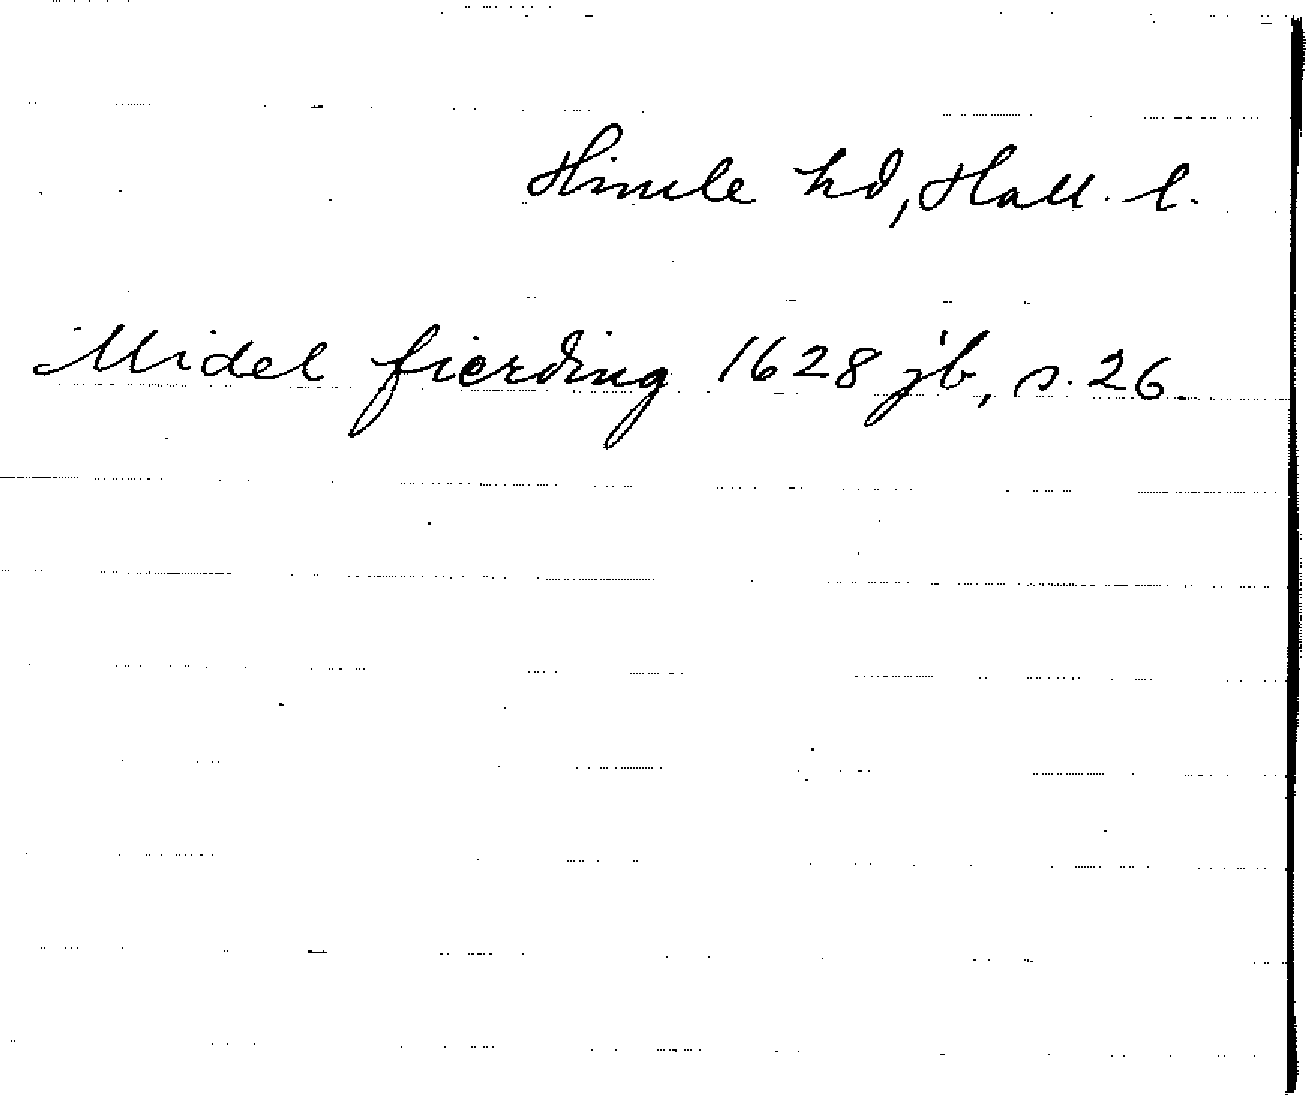 Himle hd, Hall. l.
Midel fierding 1628 jb, s. 26.